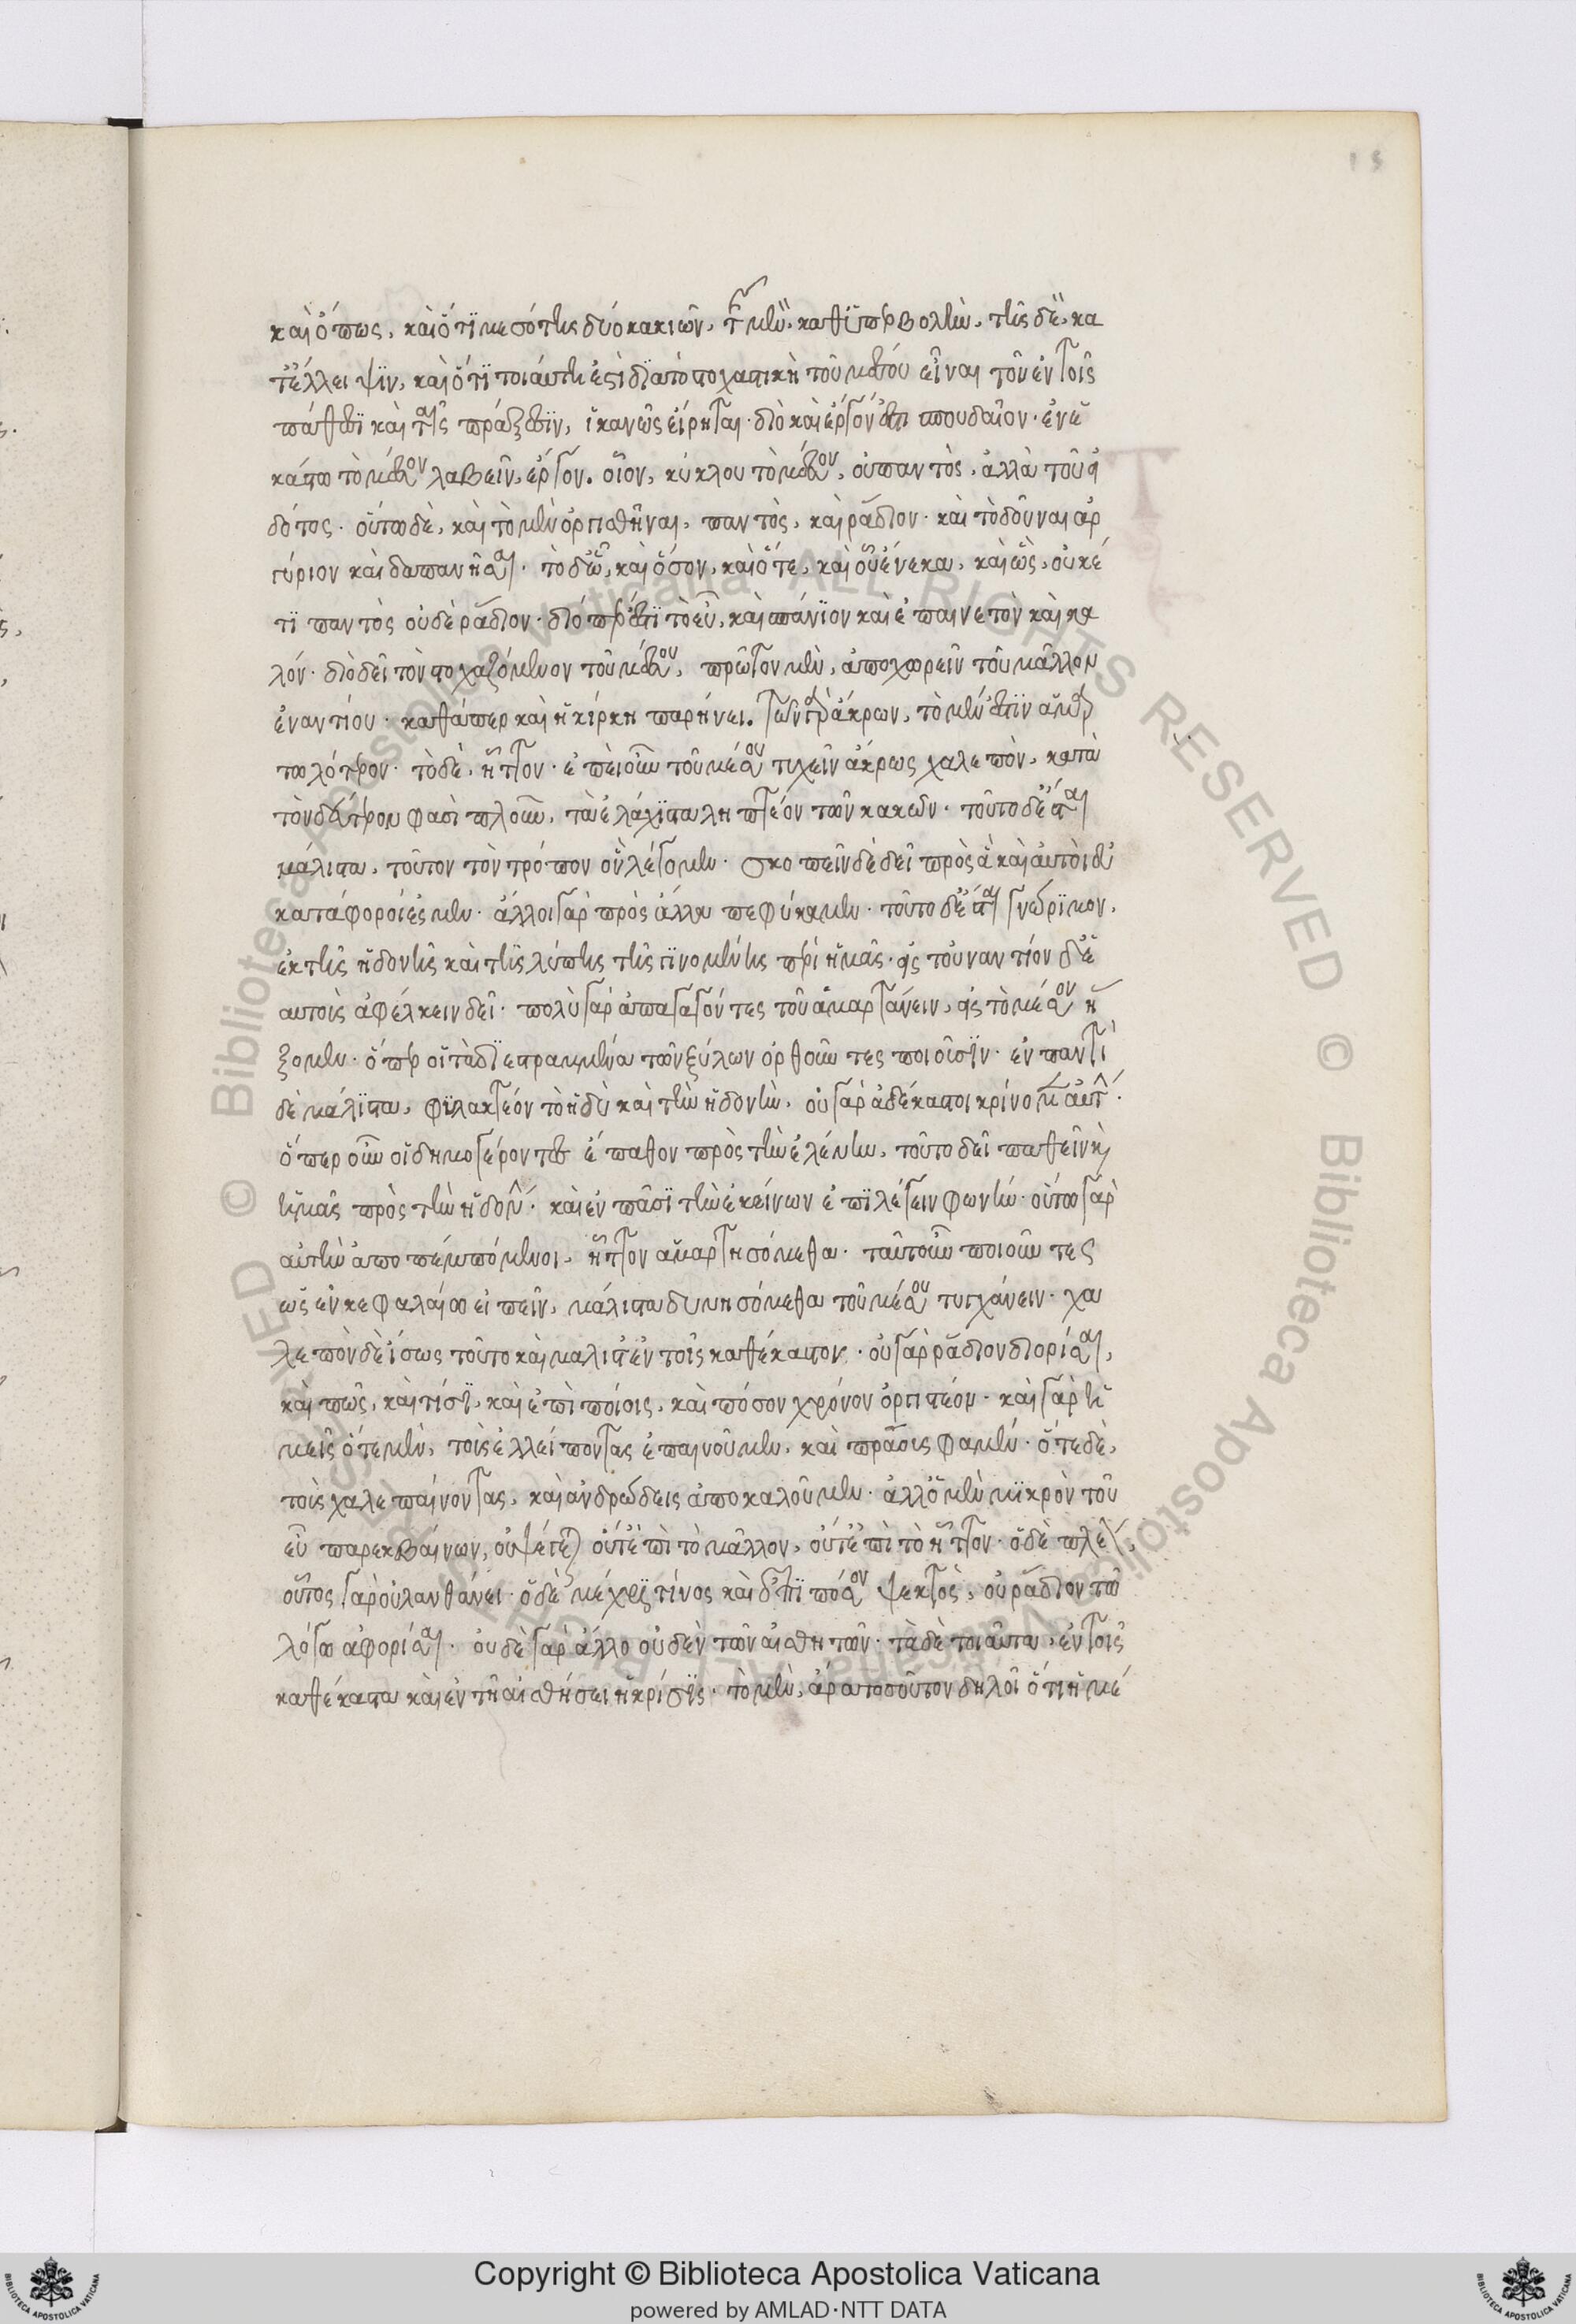 15
καὶ ὅπως, καὶ ὅτι μεσότης δύο κακιῶν, τῆς μὲν, καθ' ὑπερβολὴν, τῆς δὲ, κα
τ' ἔλλειψιν, καὶ ὅτι τοιαύτη ἐστὶ διὰ τὸ στοχαστικὴ τοῦ μέσου εἶναι τοῦ ἐν τοῖς
πάθεσι καὶ ταῖς πράξεσιν, ἱκανῶς εἴρηται. διὸ καὶ ἔργόν ἐστι σπουδαῖον. ἐν ἑ
κάστω τὸ μέσον λαβεῖν, ἔργον. οἷον, κύκλου τὸ μέσον, οὐ παντὸς, ἀλλὰ τοῦ εἰ
δότος. οὕτω δὲ, καὶ τὸ μὲν ὀργισθῆναι, παντὸς, καὶ ῥάδιον. καὶ τὸ δοῦναι ἀρ
γύριον καὶ δαπανῆσαι. τὸ δ' ᾧ, καὶ ὅσον, καὶ ὅτε, καὶ οὗ ἕνεκα, καὶ ὡς, οὐκέ
τι παντὸς οὐδὲ ῥάδιον. διόπερ ἐστὶ τὸ εὖ, καὶ σπάνιον καὶ ἐπαινετὸν καὶ κα
λόν. διὸ δεῖ τὸν στοχαζόμενον τοῦ μέσου, πρῶτον μὲν, ἀποχωρεῖν τοῦ μᾶλλον
ἐναντίου. καθάπερ καὶ ἡ κίρκη παρήνει. τῶν γὰρ ἄκρων, τὸ μέν ἐστιν ἁμαρ
τωλότερον. τὸ δὲ, ἧττον. ἐπεὶ οὖν τοῦ μέσου τυχεῖν ἄκρως χαλεπὸν, κατὰ
τὸν δεύτερον φασὶ πλοῦν, τὰ ἐλάχιστα ληπτέον τῶν κακῶν. τοῦτο δ' ἔσται
μάλιστα, τοῦτον τὸν τρόπον ὃν λέγομεν. σκοπεῖν δὲ δεῖ πρὸς ἃ καὶ αὐτοὶ εὐ
κατάφοροί ἐσμεν. ἄλλοι γὰρ πρὸς ἄλλα πεφύκαμεν. τοῦτο δ' ἔσται γνώριμον,
ἐκ τῆς ἡδονῆς καὶ τῆς λύπης τῆς γινομένης περὶ ἡμᾶς. εἰς τοὐναντίον δ' ἑ
αυτοὺς ἀφέλκειν δεῖ. πολὺ γὰρ ἀπαγαγόντες τοῦ ἁμαρτάνειν, εἰς τὸ μέσον ἥ
ξομεν. ὅπερ οἱ τὰ διεστραμμένα τῶν ξύλων ὀρθοῦντες ποιοῦσιν. ἐν παντὶ
δὲ μάλιστα, φυλακτέον τὸ ἡδὺ καὶ τὴν ἡδονὴν, οὐ γὰρ ἀδέκαστοι κρίνομεν αὐτήν.
ὅπερ οὖν οἱ δημογέροντες ἔπαθον πρὸς τὴν ἑλένην, τοῦτο δεῖ παθεῖν καὶ
ἡμᾶς πρὸς τὴν ἡδονήν. καὶ ἐν πᾶσι τὴν ἐκείνων ἐπιλέγειν φωνήν. οὕτω γὰρ
αὐτὴν ἀποπεμπόμενοι, ἧττον ἁμαρτησόμεθα. ταῦτ' οὖν ποιοῦντες
ὡς ἐν κεφαλαίω εἰπεῖν, μάλιστα δυνησόμεθα τοῦ μέσου τυγχάνειν. χα
λεπὸν δὲ ἴσως τοῦτο καὶ μάλιστ' ἐν τοῖς καθέκαστον. οὐ γὰρ ῥάδιον διορίσαι,
καὶ πῶς, καὶ τίσι, καὶ ἐπὶ ποίοις, καὶ πόσον χρόνον ὀργιστέον. καὶ γὰρ ἡ
μεῖς ὁτὲ μὲν, τοὺς ἐλλείποντας ἐπαινοῦμεν, καὶ πράους φαμέν. ὁτὲ δὲ,
τοὺς χαλεπαίνοντας, καὶ ἀνδρώδεις ἀποκαλοῦμεν. ἀλλ' ὁ μὲν μικρὸν τοῦ
εὖ παρεκβαίνων, οὐ ψέγεται οὔτ' ἐπὶ τὸ μᾶλλον, οὔτ' ἐπὶ τὸ ἧττον. ὁ δὲ πλέον,
οὗτος γὰρ οὐ λανθάνει. ὁ δὲ μέχρι τίνος καὶ ἐπὶ πόσον ψεκτὸς, οὐ ῥάδιον τῶ
λόγω ἀφορίσαι. οὐδὲ γὰρ ἄλλο οὐδὲν τῶν αἰσθητῶν. τὰ δὲ τοιαῦτα, ἐν τοῖς
καθέκαστα καὶ ἐν τῆ αἰσθήσει ἡ κρίσις. τὸ μὲν, ἄρα τοσοῦτον δηλοῖ ὅτι ἡ μέ
Copyright © Biblioteca Apostolica Vaticana
powered by AMLAD·NTT DATA